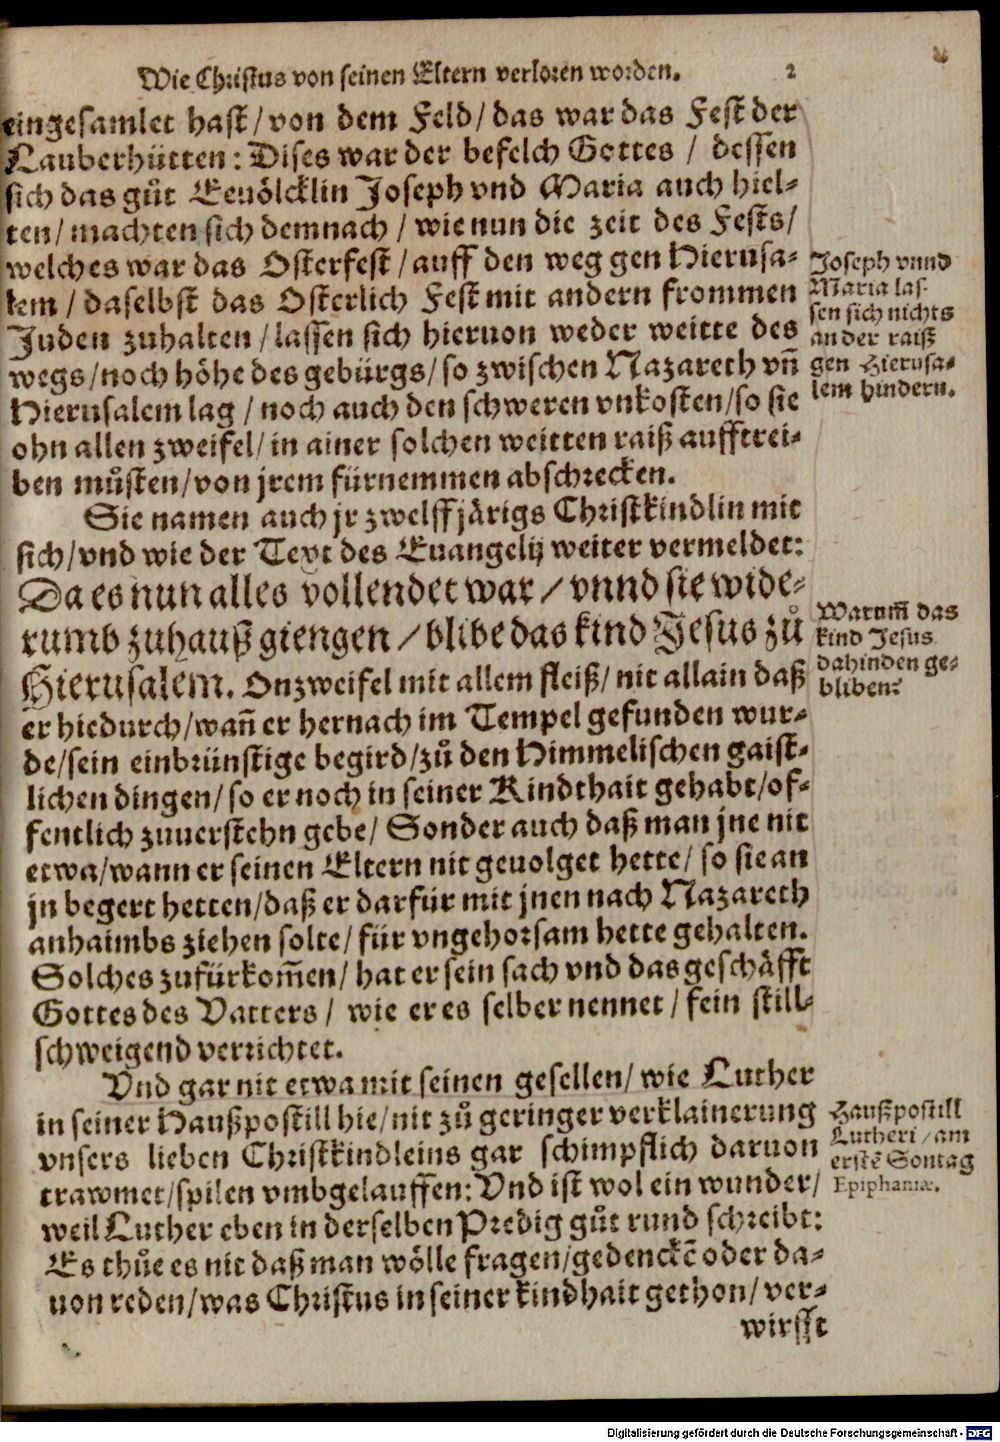 Wie Christus von seinen Eltern verloren worden. 2
eingesamlet hast / von dem Feld / das war das Fest der
Lauberhütten: Dises war der befelch Gottes / dessen
sich das gůt Eeuölcklin Joseph vnd Maria auch hiel-
ten / machten sich demnach / wie nun die zeit des Fests /
welches war das Osterfest / auff den weg gen Hierusa-
lem / daselbst das Osterlich Fest mit andern frommen
Juden zuhalten / lassen sich hieruon weder weitte des
wegs / noch höhe des gebürgs / so zwischen Nazareth vñ
Hierusalem lag / noch auch den schweren vnkosten / so sie
ohn allen zweifel / in ainer solchen weitten raiß aufftrei-
ben můsten / von jrem fürnemmen abschrecken.
Joseph vnnd
Maria las-
sen sich nichts
an der raiß
gen Hierusa-
lem hindern.
Sie namen auch jr zwelffjärigs Christkindlin mit
sich / vnd wie der Text des Euangelij weiter vermeldet:
Da es nun alles vollendet war / vnnd sie wide-
rumb zuhauß giengen / blibe das kind Jesus zů
Hierusalem. Onzweifel mit allem fleiß / nit allain daß
er hiedurch / wañ er hernach im Tempel gefunden wur-
de / sein einbrünstige begird / zů den Himmelischen gaist-
lichen dingen / so er noch in seiner Kindthait gehabt / of-
fentlich zuuerstehn gebe / Sonder auch daß man jne nit
etwa / wann er seinen Eltern nit geuolget hette / so sie an
jn begert hetten / daß er darfür mit jnen nach Nazareth
anhaimbs ziehen solte / für vngehorsam hette gehalten.
Solches zufürkom̃en / hat er sein sach vnd das geschäfft
Gottes des Vatters / wie er es selber nennet / fein still-
schweigend verrichtet.
Warum̃ das
kind Jesus
dahinden ge-
bliben?
Vnd gar nit etwa mit seinen gesellen / wie Luther
in seiner Haußpostill hie / nit zů geringer verklainerung
vnsers lieben Christkindleins gar schimpflich daruon
trawmet / spilen vmbgelauffen: Vnd ist wol ein wunder /
weil Luther eben in derselben Predig gůt rund schreibt:
Es thůe es nit daß man wölle fragen / gedenckē oder da-
uon reden / was Christus in seiner kindhait gethon / ver-
wirfft
Haußpostill
Lutheri / am
erstē Sontag
Epiphaniæ.
Digitalisierung gefördert durch die Deutsche Forschungsgemeinschaft - DFG